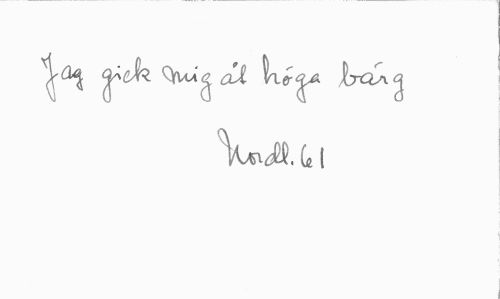 Jag gick mig åt höga bärg
Nordl. 61